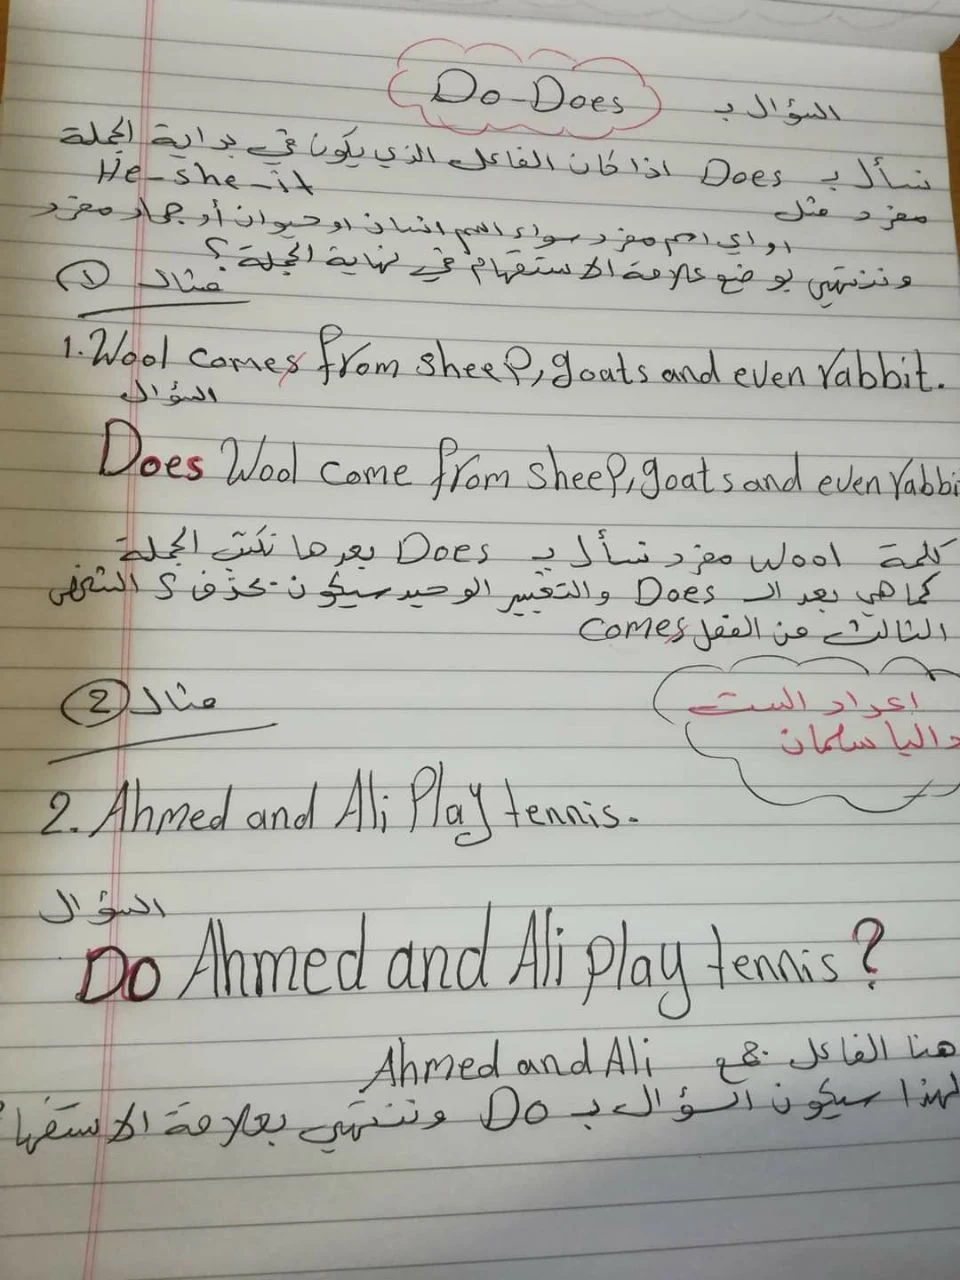 السؤال بـ Do-Does
نسأل بـ Does اذا كان الفاعل الذي يكون في بداية الجملة
مفرد مثل He-she-it
او اي اسم مفرد سواء اسم انسان او حيوان أو جماد مفرد
وننتهي بوضع علامة الاستفهام في نهاية الجملة ؟
مثال 1
1. Wool comes from sheep, goats and even rabbit.
السؤال
Does Wool come from sheep, goats and even rabbi
كلمة wool مفرد نسأل بـ Does بعدها نكتب الجملة
كما هي بعد الـ Does والتغيير الوحيد سيكون بحذف s الشخص
الثالث من الفعل comes
اعداد الست
داليا سلمان
مثال 2
2. Ahmed and Ali Play tennis.
السؤال
Do Ahmed and Ali play tennis ?
هنا الفاعل جمع Ahmed and Ali
لهذا سيكون السؤال بـ Do وننتهي بعلامة الاستفها